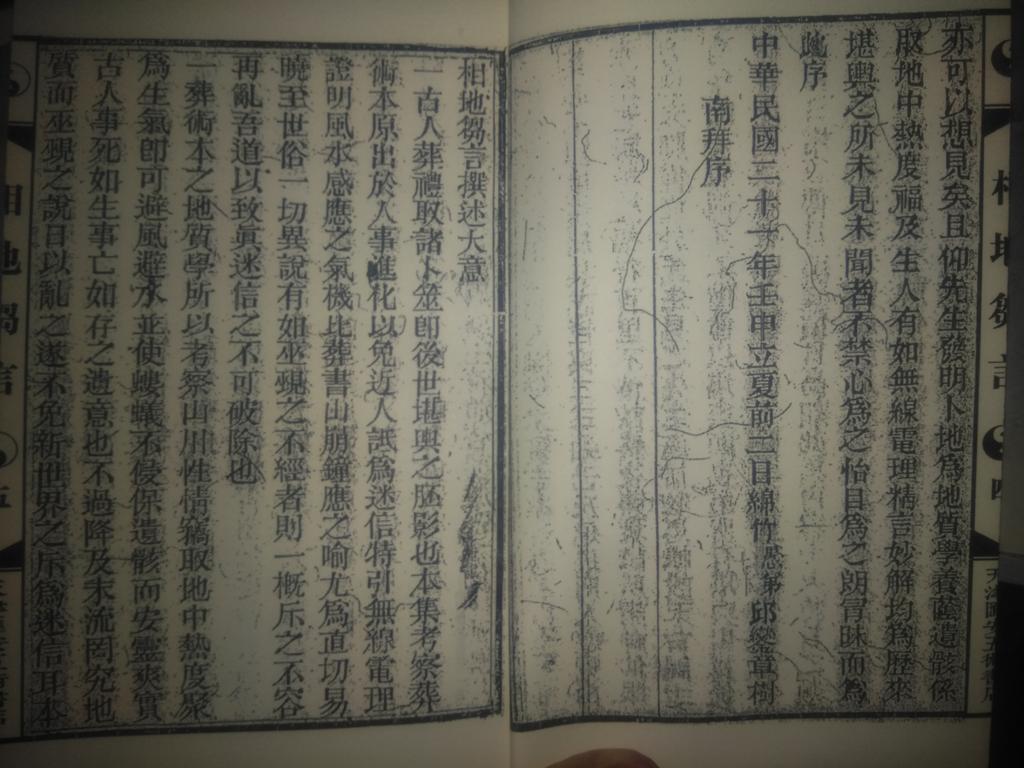 亦可以想見矣且仰先生發明卜地爲地質學養蔭遺骸係
取地中熱度福及生人有如無線電理精言妙解均爲歷來
堪輿之所未見未聞者不禁心爲之怡目爲之朗冒昧而爲
此序
中華民國二十一年壬申立夏前二日綿竹邱燮章樹
南拜序
相地芻言
四
相地芻言撰述大意
一古人葬禮取諸卜筮卽後世堪輿之胚影也本集考察葬
術本原出於人事進化以免近人誤爲迷信特引無線電理
證明風水感應之氣機比葬書山崩鐘應之喻尤爲直切易
曉至世俗一切異說有如巫覡之不經者則一概斥之不容
再亂吾道以致眞迷信之不可破除也
一葬術本之地質學所以考察山川性情竊取地中熱度聚
爲生氣卽可避風避水並使螻蟻不侵保遺骸而安靈爽實
古人事死如生事亡如存之遺意也不過降及末流罔究地
質而巫覡之說日以亂之遂不免新世界之斥爲迷信耳本
相地
五